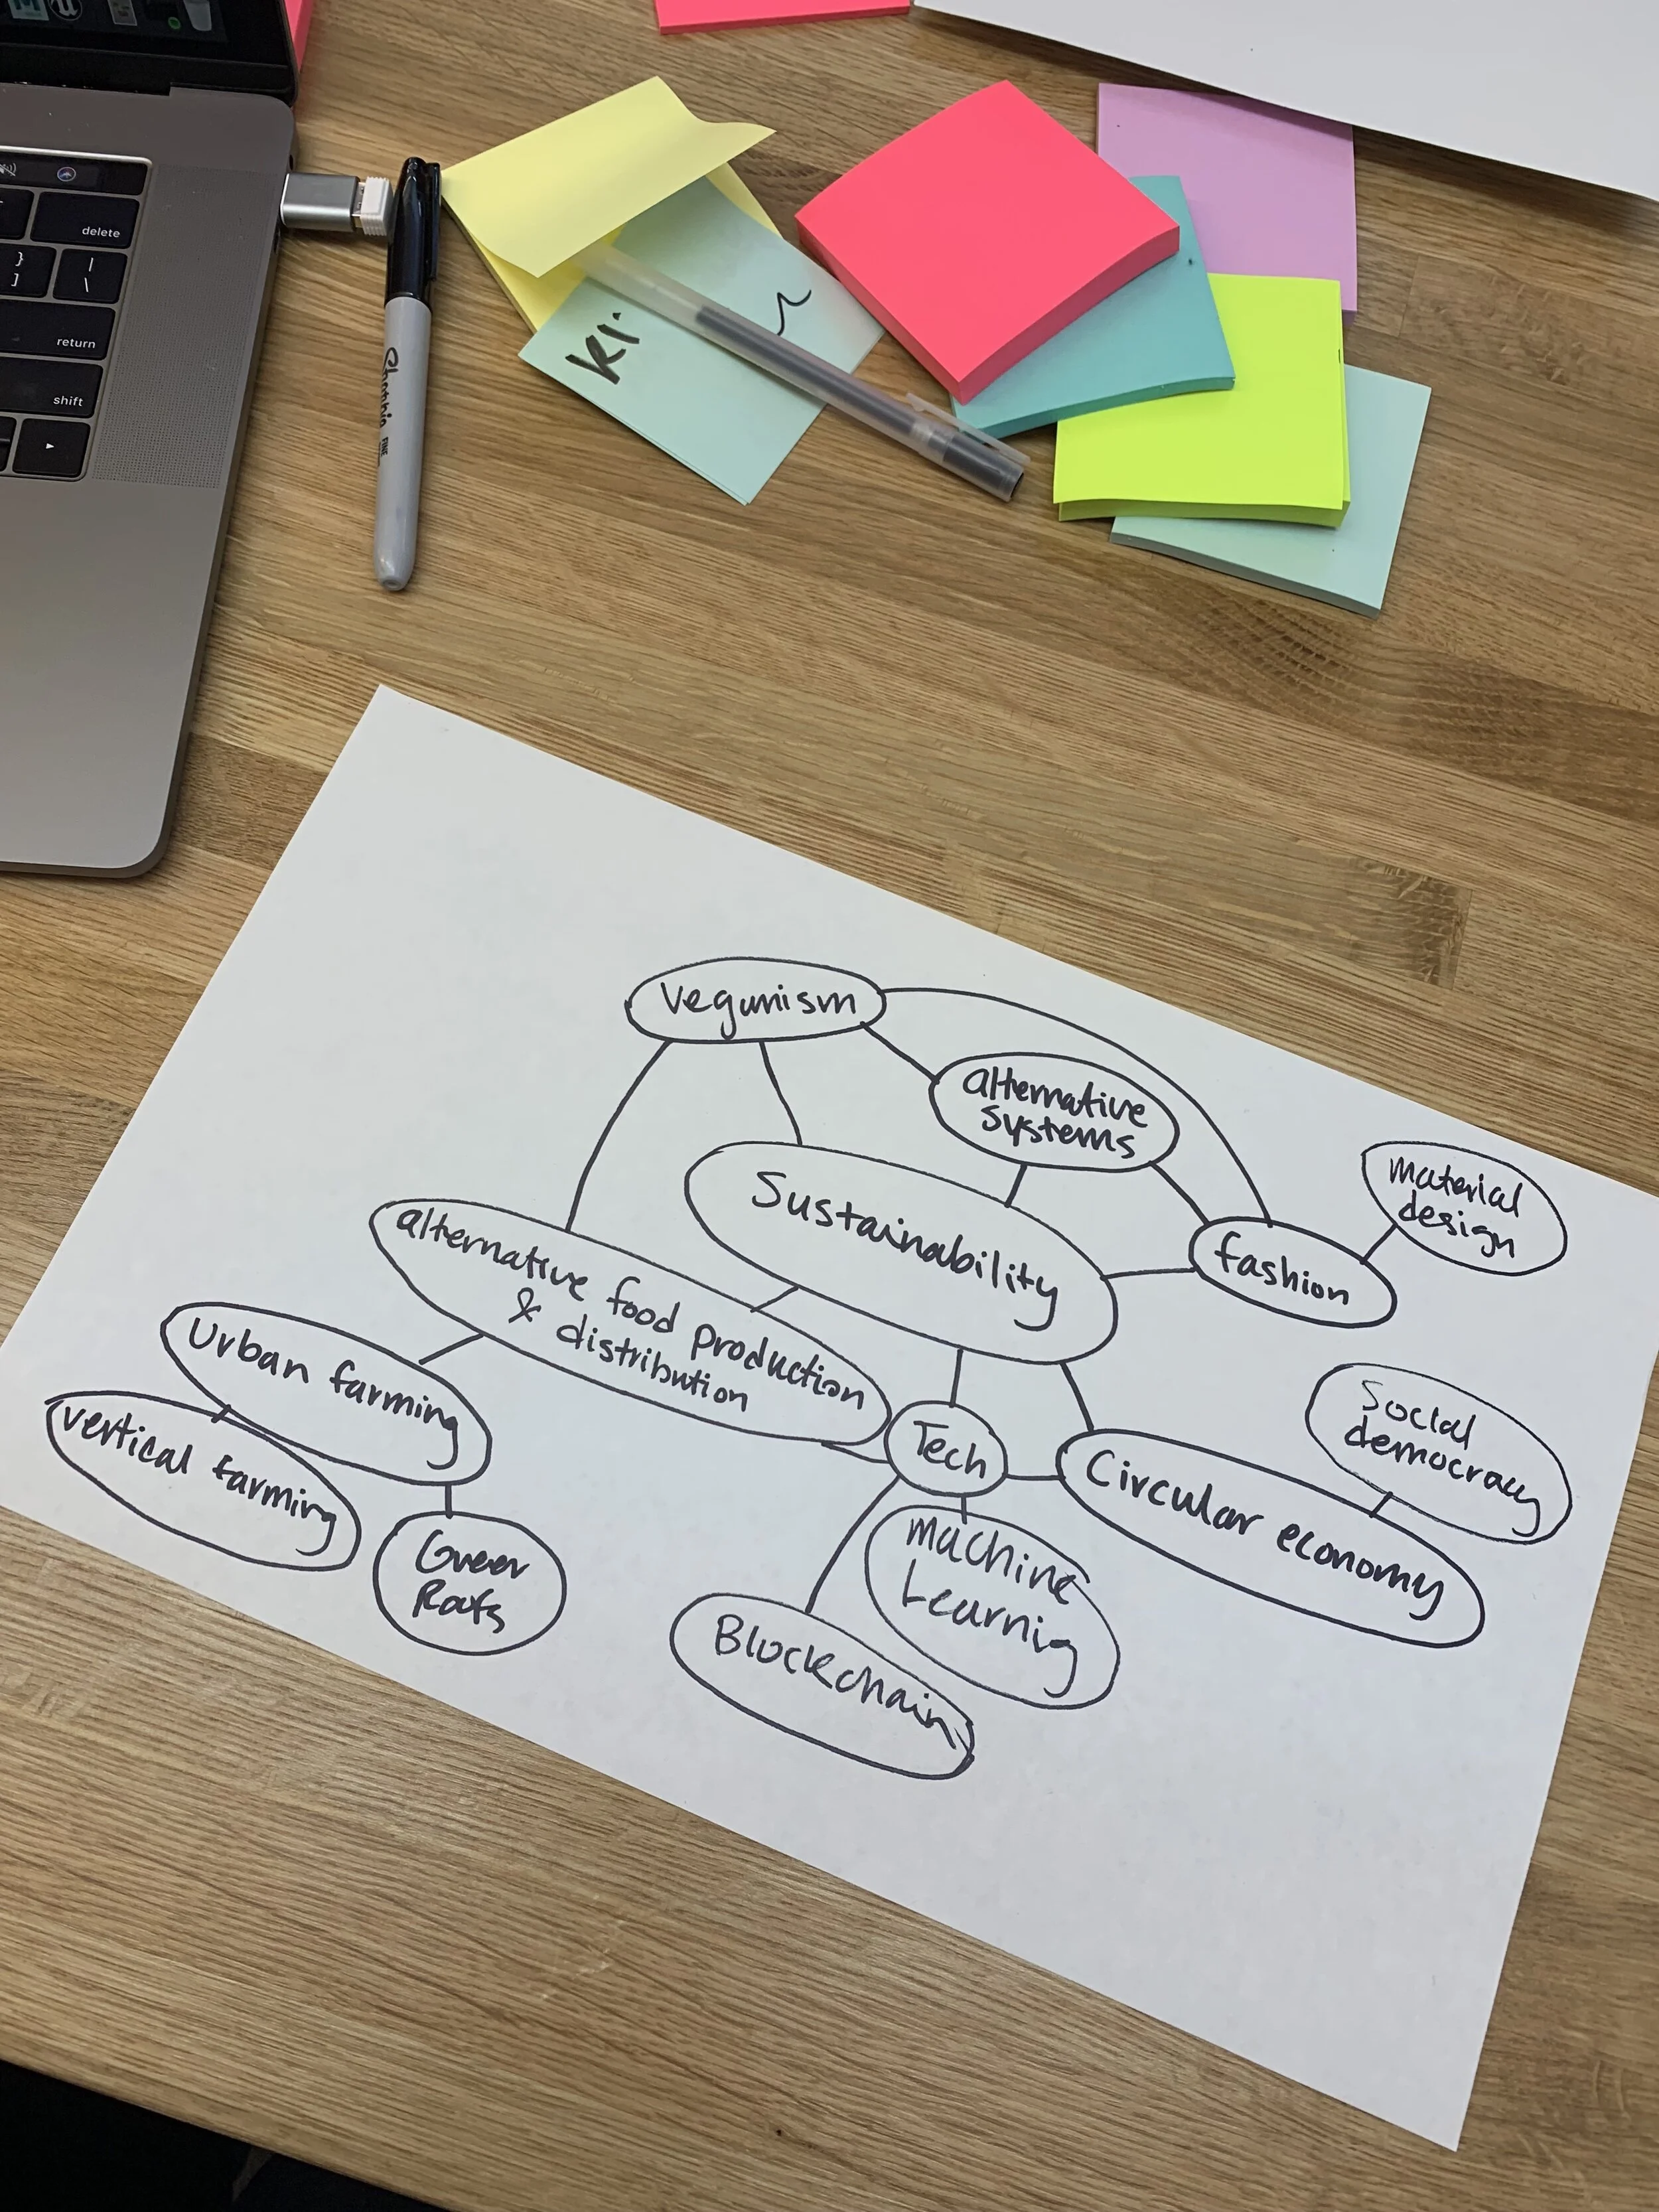 delete
}
]
|
\
return
shift
Sharpie FINE
KI.
Veganism
alternative
systems
Sustainability
material
design
fashion
alternative food production
& distribution
Urban farming
vertical farming
Green
Roofs
Tech
Circular economy
Social
democracy
machine
Learnig
Blockchain